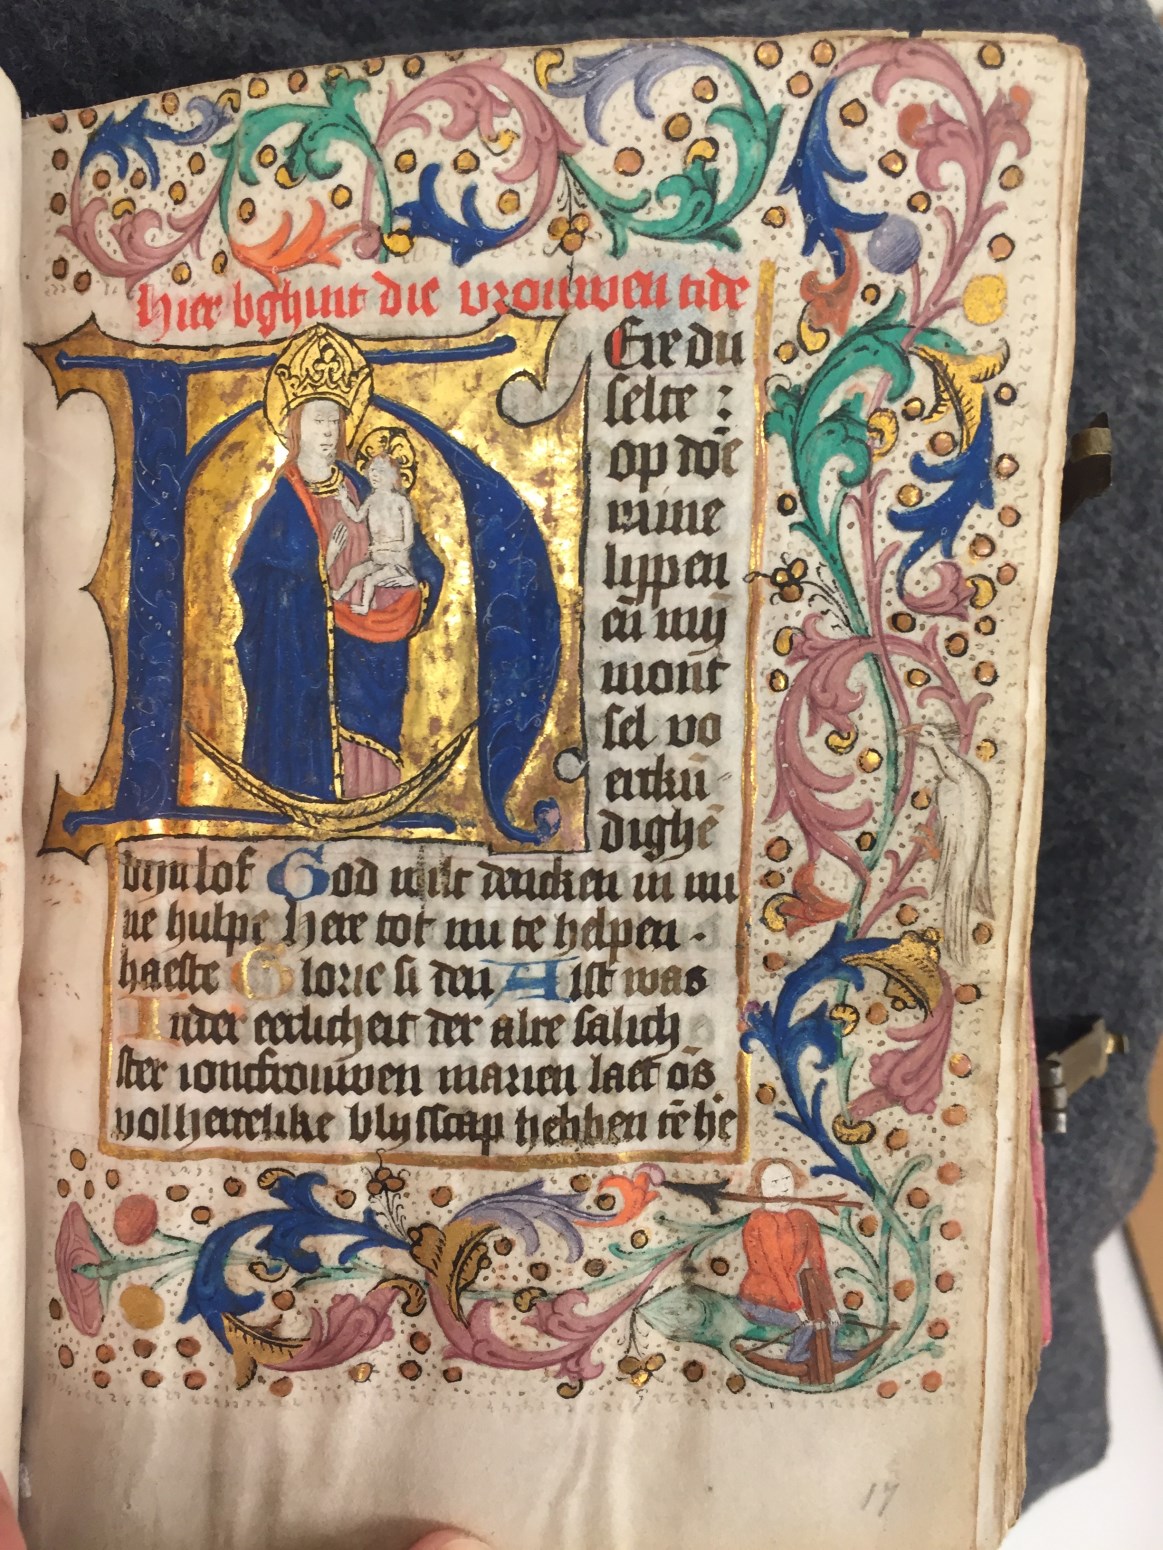 hier bghint die vrouwen tide
HEre du
selte :
op doē
mine
lyppen
eñ mij
mont
sel vo
erkū
dighē
dijn lof God wilt dencken in mi
ne hulpe Here tot mi te helpen .
haeste Glorie si den Alst was
Inder eerlicheit der alre salich
ster ioncfrouwen marien laet ōs
volherrelike blijsscap hebben tē tie
17